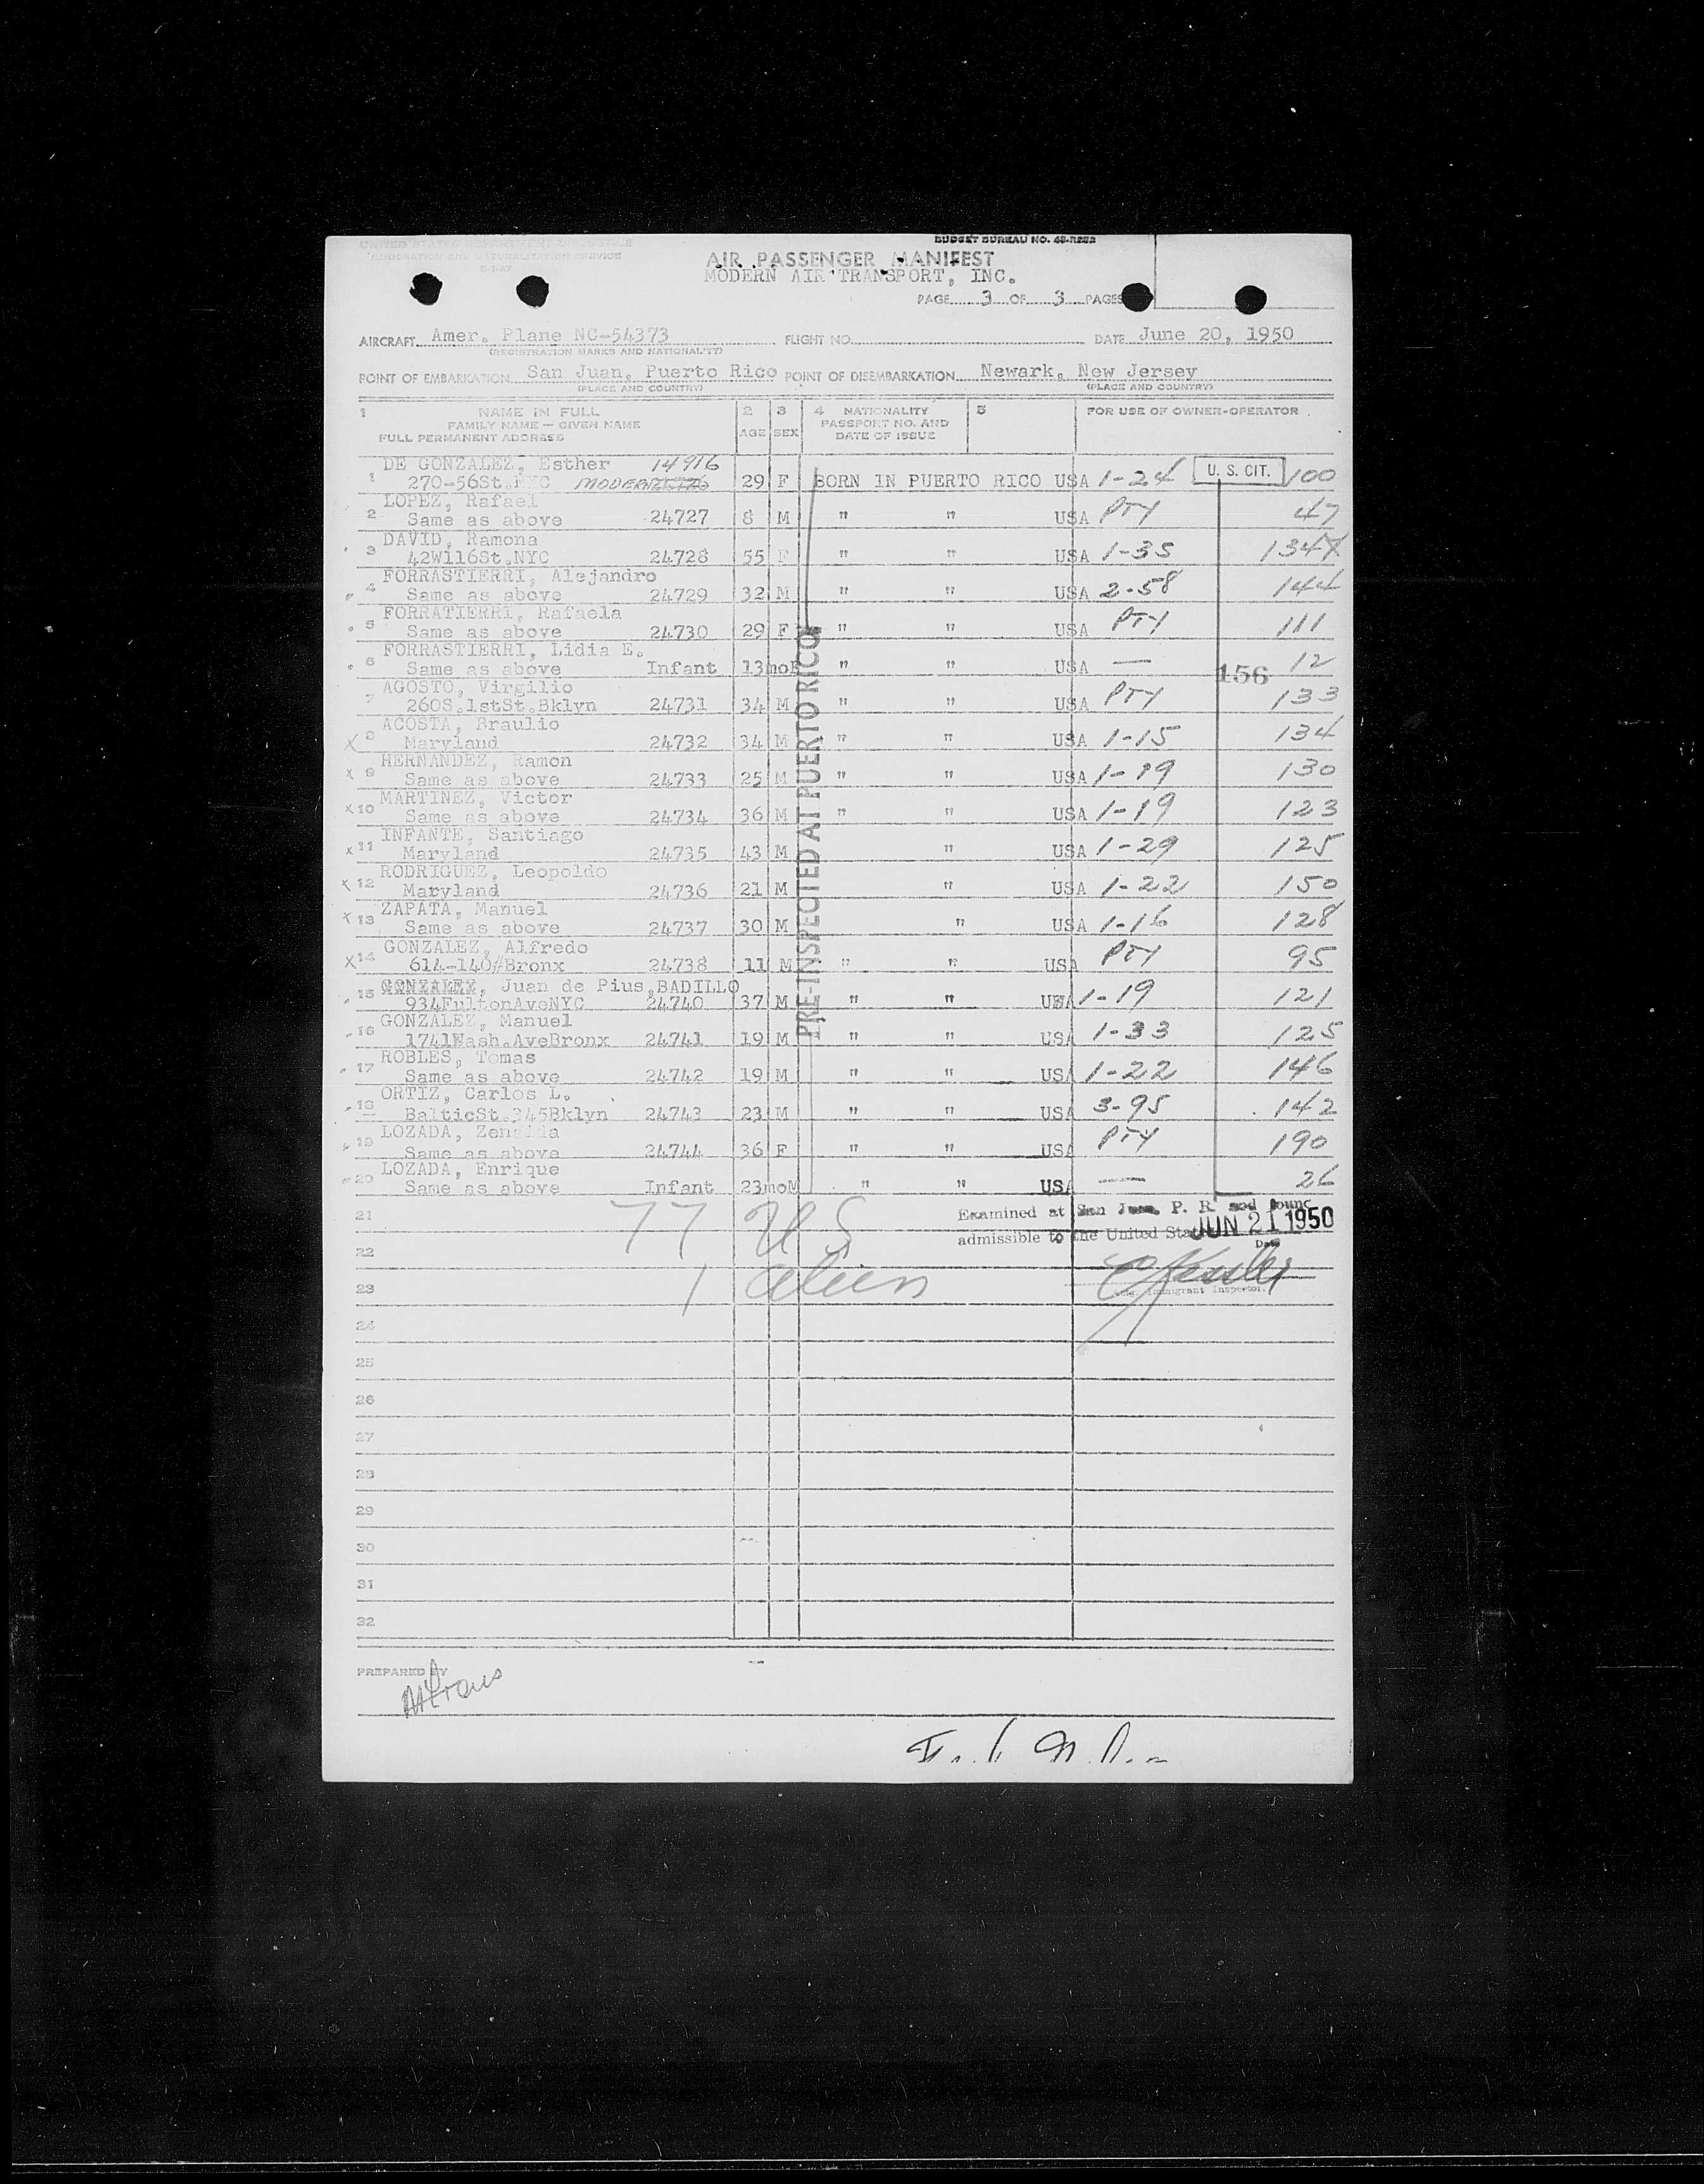 UNITED STATES DEPARTMENT OF JUSTICE
IMMIGRATION AND NATURALIZATION SERVICE
BUDGET BUREAU NO. 43-R282
AIR PASSENGER MANIFEST
MODERN AIR TRANSPORT, INC.
PAGE 3 OF 3 PAGES
AIRCRAFT Amer. Plane NC-54373 FLIGHT NO. DATE June 20, 1950
(REGISTRATION MARKS AND NATIONALITY)
POINT OF EMBARKATION San Juan, Puerto Rico POINT OF DISEMBARKATION Newark, New Jersey
(PLACE AND COUNTRY) (PLACE AND COUNTRY)
1 NAME IN FULL 2 3 4 NATIONALITY 5 FOR USE OF OWNER-OPERATOR
FAMILY NAME — GIVEN NAME AGE SEX PASSPORT NO. AND
FULL PERMANENT ADDRESS DATE OF ISSUE
DE GONZALEZ, Esther 14916
1 270-56St.NYC MODERN 29 F BORN IN PUERTO RICO USA 1-24 U. S. CIT. 100
LOPEZ, Rafael
2 Same as above 24727 8 M " " USA PTY 47
DAVID, Ramona
3 42W116St.NYC 24728 55 F " " USA 1-35 134
FORRASTIERRI, Alejandro
4 Same as above 24729 32 M " " USA 2-58 144
FORRATIERRI, Rafaela
5 Same as above 24730 29 F " " USA PTY 111
FORRASTIERRI, Lidia E.
6 Same as above Infant 13moF " " USA — 156 12
AGOSTO, Virgilio
7 260S.1stSt.Bklyn 24731 34 M " " USA PTY 133
ACOSTA, Braulio
X 8 Maryland 24732 34 M " " USA 1-15 134
HERNANDEZ, Ramon
X 9 Same as above 24733 25 M " " USA 1-19 130
MARTINEZ, Victor
X 10 Same as above 24734 36 M " " USA 1-19 123
INFANTE, Santiago
X 11 Maryland 24735 43 M " USA 1-29 125
RODRIGUEZ, Leopoldo
X 12 Maryland 24736 21 M " USA 1-22 150
ZAPATA, Manuel
X 13 Same as above 24737 30 M " USA 1-16 128
GONZALEZ, Alfredo
X 14 614-140#Bronx 24738 11 M " " USA PTY 95
15 GONZALEZ, Juan de Pius,BADILLO
934FultonAveNYC 24740 37 M " " USA 1-19 121
GONZALEZ, Manuel
16 1741Wash.AveBronx 24741 19 M " " USA 1-33 125
ROBLES, Tomas
17 Same as above 24742 19 M " " USA 1-22 146
ORTIZ, Carlos L.
18 BalticSt.345Bklyn 24743 23 M " " USA 3-95 142
LOZADA, Zenaida
19 Same as above 24744 36 F " " USA PTY 190
LOZADA, Enrique
20 Same as above Infant 23moM " " USA — 26
PRE-INSPECTED AT PUERTO RICO
21 77 US Examined at San Juan, P. R. and found
22 admissible to the United States JUN 21 1950
Date
23 1 alien
Immigrant Inspector.
24
25
26
27
28
29
30
31
32
PREPARED BY